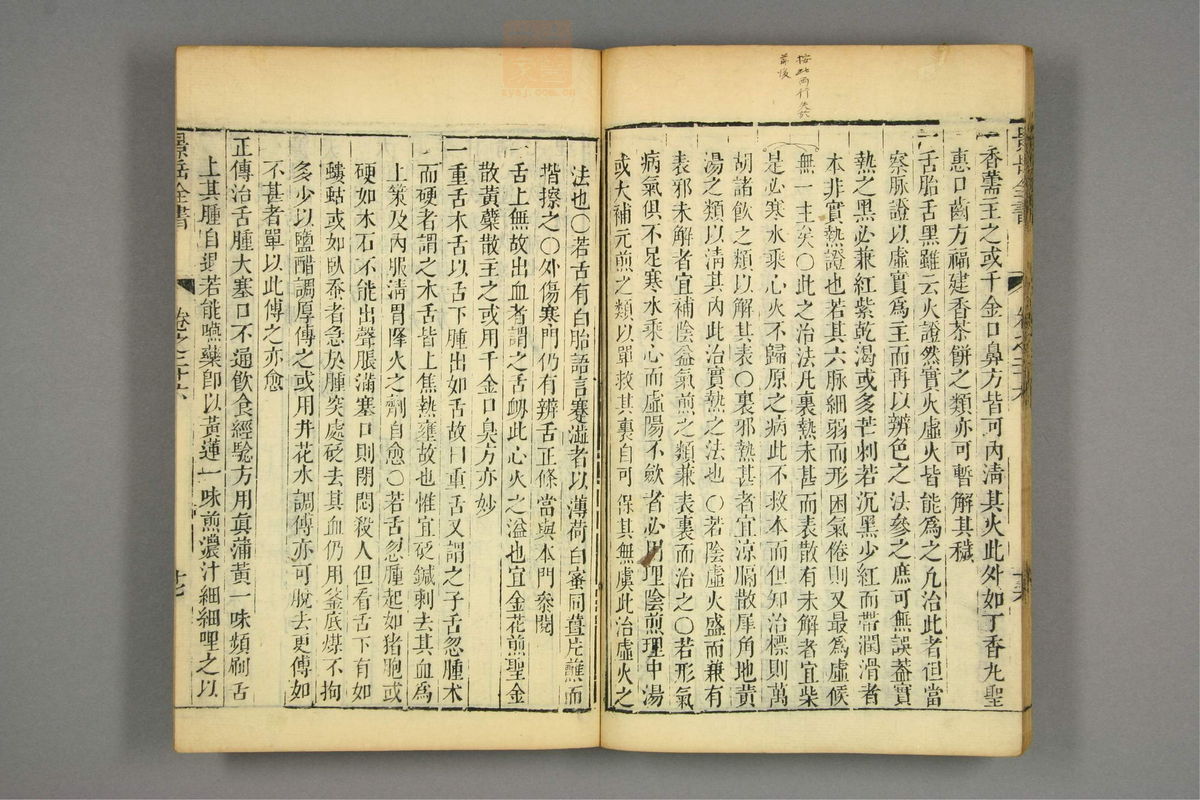 按此兩行失於
前後
景岳全書
卷之二十六
一香薷主之或千金口鼻方皆可內清其火此外如丁香丸聖
惠口齒方福建香茶餅之類亦可暫解其穢
一舌胎舌黑雖云火證然實火虛火皆能為之凡治此者但當
察脉證以虛實爲主而再以辨色之法參之庶可無誤葢實
熱之黑必兼紅紫乾渴或多芒刺若沉黑少紅而帶潤滑者
本非實熱證也若其六脉細弱而形困氣倦則又最爲虛候
是必寒水乘心火不歸原之病此不救本而但知治標則萬
無一生矣○此之治法凡裏熱未甚而表散有未解者宜柴
胡諸飲之類以解其表○裏邪熱甚者宜涼膈散犀角地黄
湯之類以淸其內此治實熱之法也○若陰虛火盛而兼有
表邪未解者宜補陰益氣煎之類兼表裏而治之○若形氣
病氣俱不足寒水乘心而虛陽不歛者必用理陰煎理中湯
或大補元煎之類以單救其裏自可保其無虞此治虛火之
法也○若舌有白胎語言蹇澁者以薄荷白蜜同薑片蘸而
揩擦之○外傷寒門仍有辨舌正條當與本門叅閱
一舌上無故出血者謂之舌衂此心火之溢也宜金花煎聖金
散黄蘗散主之或用千金口臭方亦妙
一重舌木舌以舌下腫出如舌故曰重舌又謂之子舌忽腫木
而硬者謂之木舌皆上焦熱壅故也惟宜砭鍼剌去其血爲
上策及內服淸胃降火之劑自愈○若舌忽腫起如猪胞或
硬如木石不能出聲脹滿塞口則閉悶殺人但看舌下有如
螻蛄或如臥蚕者急於腫突處砭去其血仍用釜底煤不拘
多少以鹽醋調厚傅之或用井花水調傅亦可脫去更傅如
不甚者單以此傅之亦愈
正傳治舌腫大塞口不通飲食經騐方用眞蒲黃一味頻刷舌
上其腫自退若能嚥藥卽以黃蓮一味煎濃汁細細呷之以
景岳全書
卷之二十六